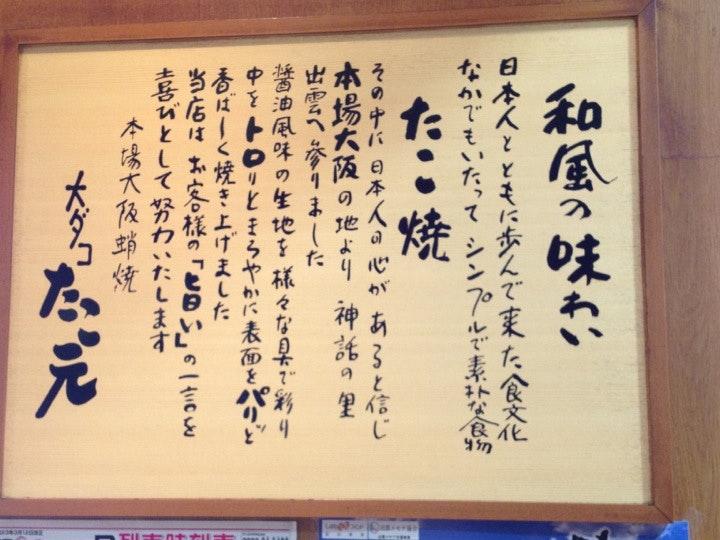 和風の味わい
日本人とともに歩んで来た食文化
なかでもいたって シンプルで素朴な食物
たこ焼
その中に日本人の心が あると信じ
本場大阪の地より 神話の里
出雲へ参りました
醤油風味の生地を様々な具で彩り
中をトロリとまろやかに表面をパリッと
香ばしく焼き上げました
当店は お客様の「旨い」の一言を
喜びとして努力いたします
本場大阪蛸焼
大ダコ たこ元
列車時刻表